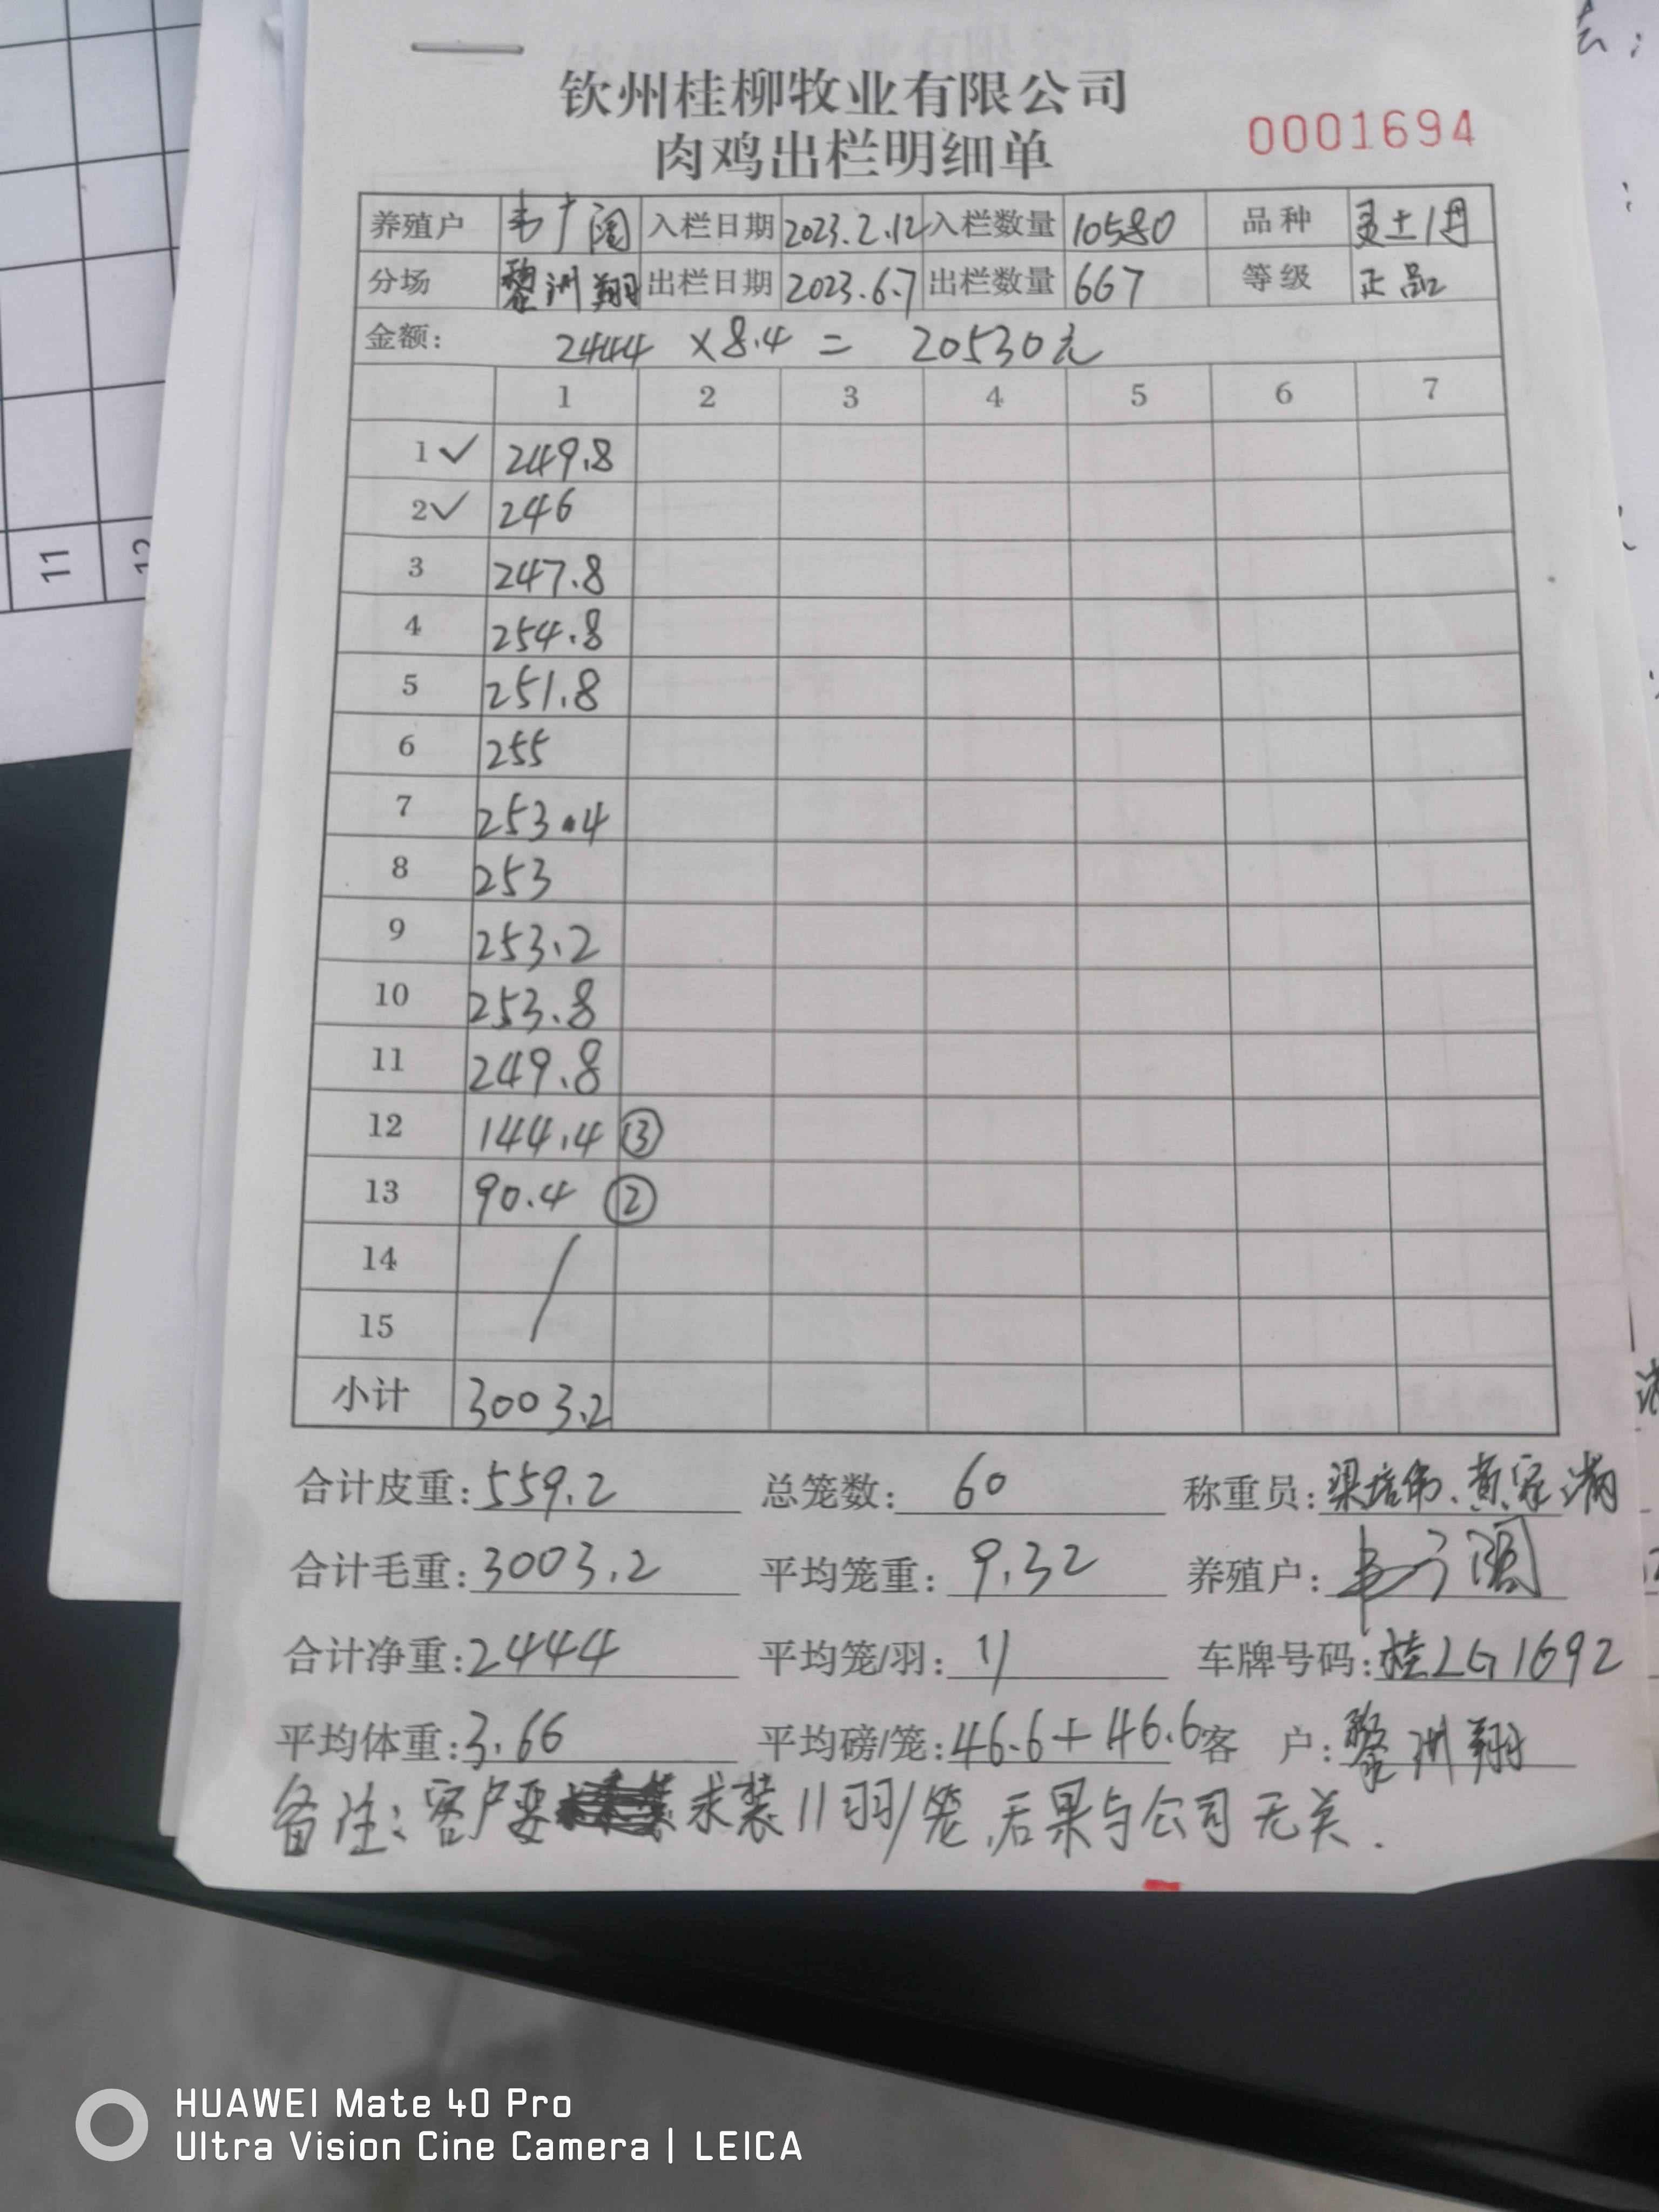 钦州桂柳牧业有限公司
肉鸡出栏明细单
0001694
养殖户 韦广阔 入栏日期 2023.2.12 入栏数量 10580 品种 灵土1号
分场 黎洲翔 出栏日期 2023.6.7 出栏数量 667 等级 正品
金额: 2444 ×8.4 = 20530元
1 2 3 4 5 6 7
1 ✓ 249.8
2 ✓ 246
3 247.8
4 254.8
5 251.8
6 255
7 253.4
8 253
9 253.2
10 253.8
11 249.8
12 144.4 ③
13 90.4 ②
14 /
15
小计 3003.2
合计皮重: 559.2 总笼数: 60 称重员: 梁培伟、黄冠满
合计毛重: 3003.2 平均笼重: 9.32 养殖户: 韦广阔
合计净重: 2444 平均笼/羽: 11 车牌号码: 桂LG1692
平均体重: 3.66 平均磅/笼: 46.6+46.6 客 户: 黎洲翔
备注: 客户要求装11羽/笼,后果与公司无关.
11
12
HUAWEI Mate 40 Pro
Ultra Vision Cine Camera | LEICA